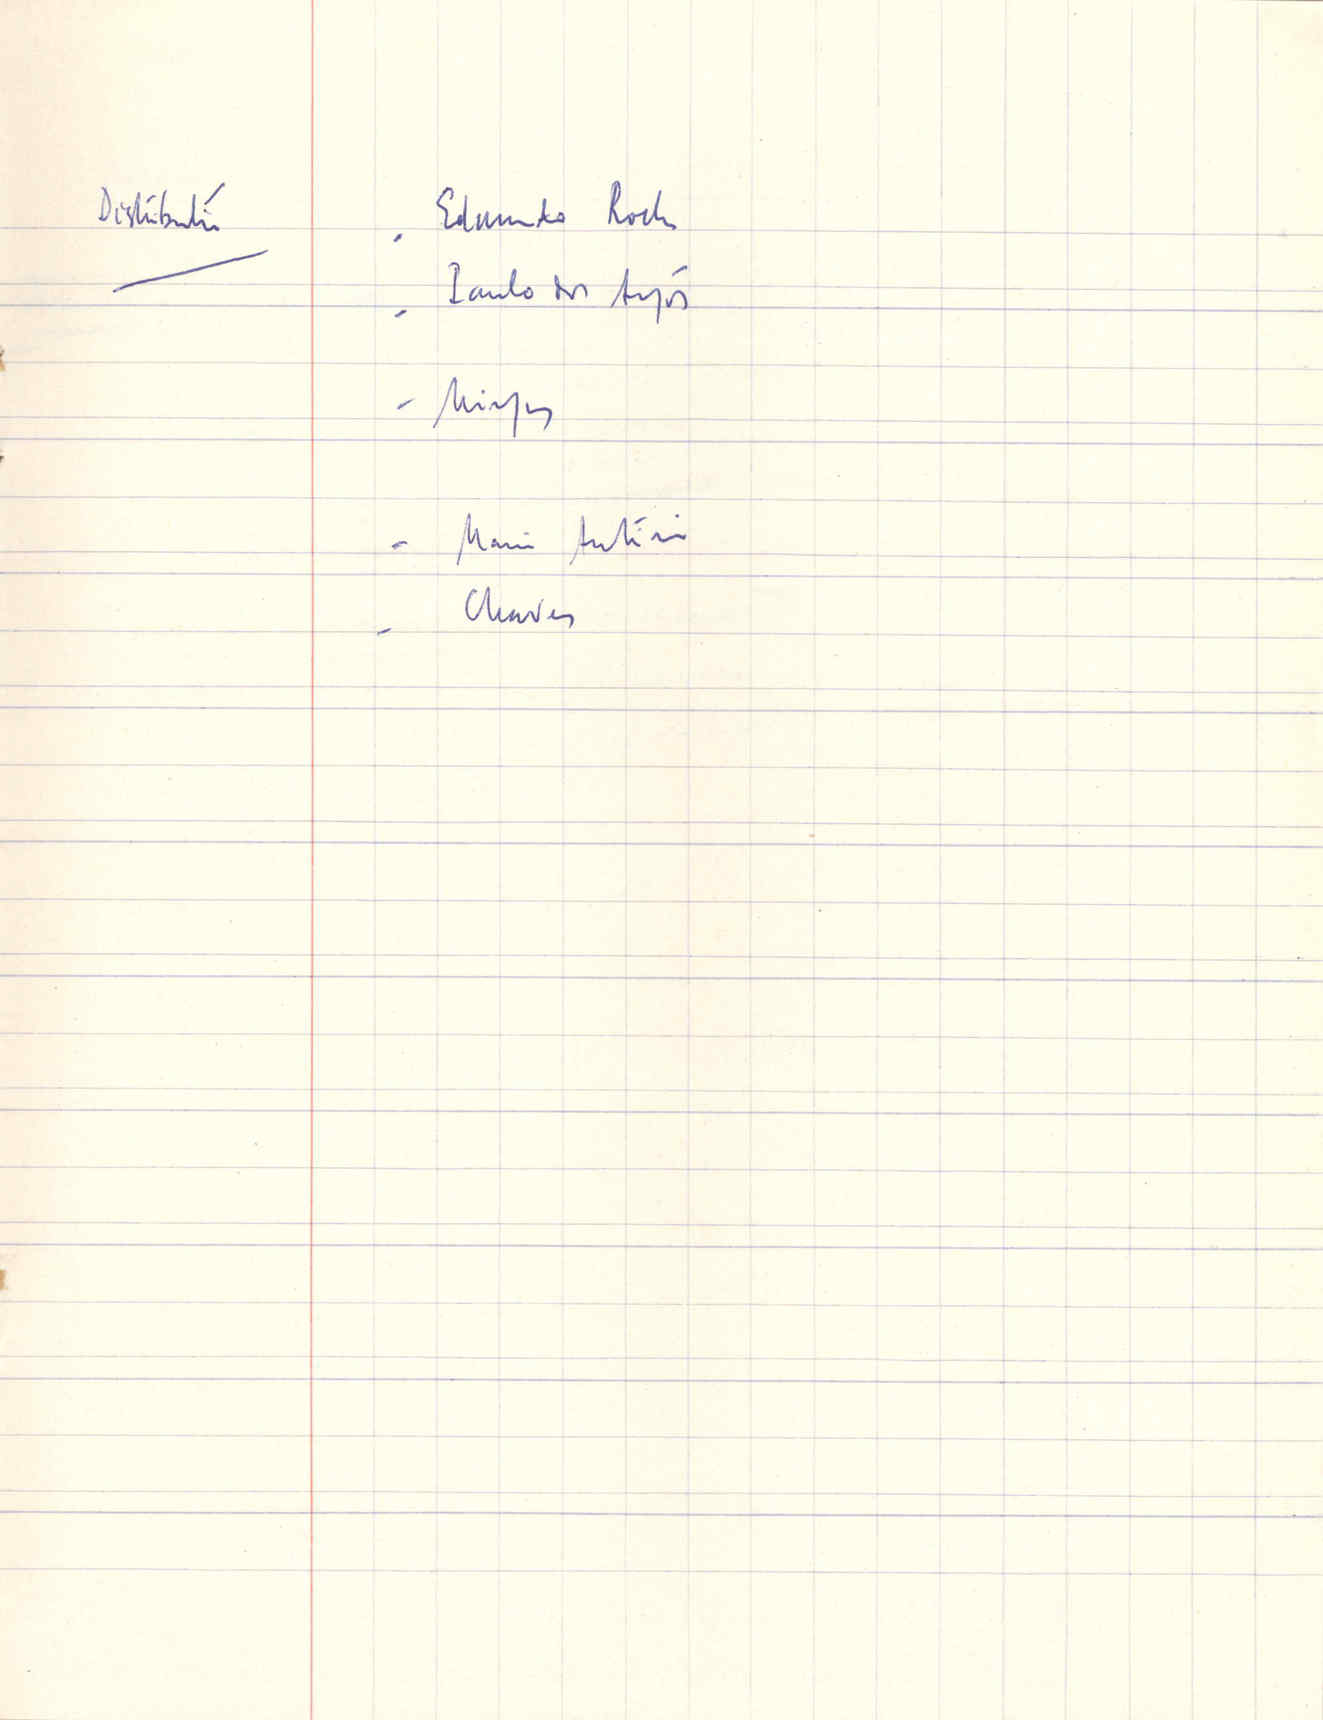 Distribution
- Edmundo Rocha
- Paulo dos Anjos
- Mingas
- Mario António
- Chaves